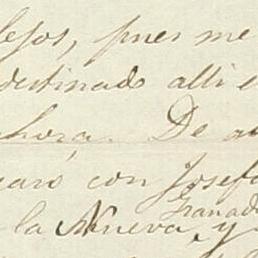 lejos, pues me
destinado alli e
ahora. De a
caró con Josefa
Granad
la Nueva y